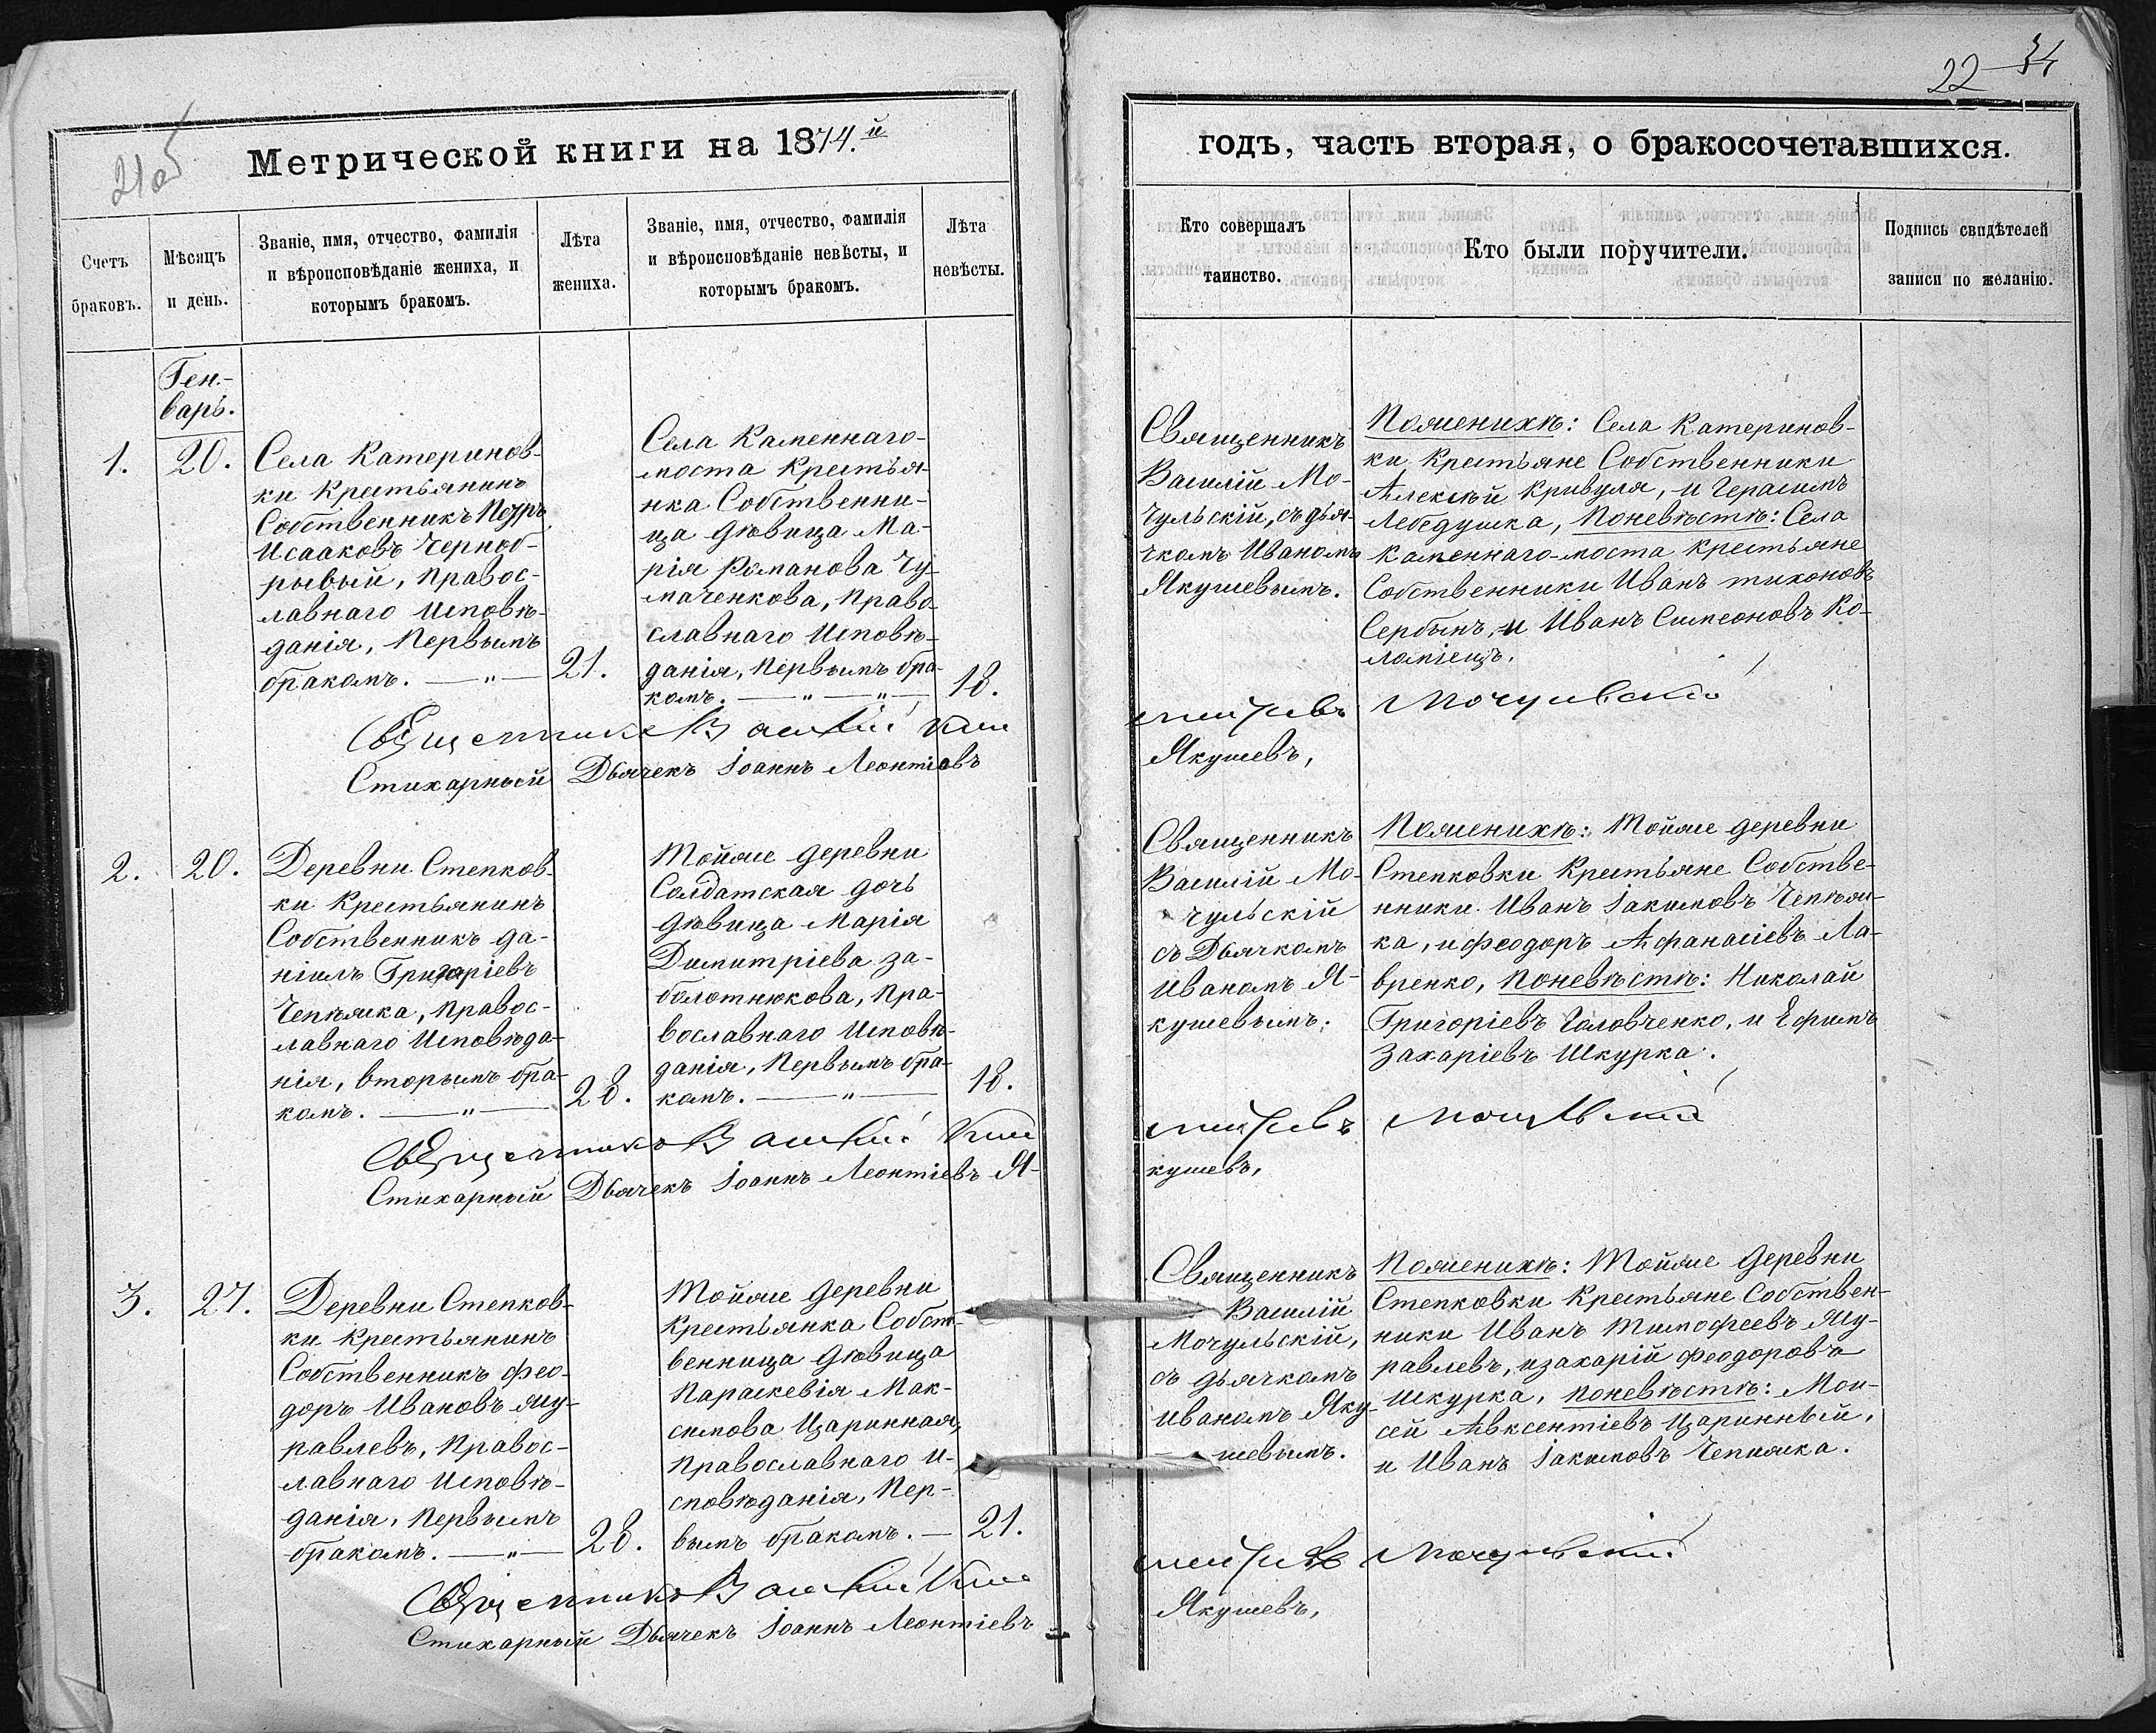 22 34
21об
Метрической книги на 1874.й
годъ, часть вторая, о бракосочетавшихся.
Счетъ
браковъ.
Мѣсяцъ
и день.
Званіе, имя, отчество, фамилія
и вѣроисповѣданіе жениха, и
которымъ бракомъ.
Лѣта
жениха.
Званіе, имя, отчество, фамилія
и вѣроисповѣданіе невѣсты, и
которымъ бракомъ.
Лѣта
невѣсты.
Кто совершалъ
таинство.
Кто были поручители.
Подпись свидѣтелей
записи по желанію.
Ген-
варь.
1.
20.
Села Катеринов-
ки Крестьянинъ
Собственникъ Петръ
Исааковъ Черноб-
рывый, Правос-
лавнаго Исповѣ-
данія, Первымъ
бракомъ. — „ —
21.
Села Каменнаго-
моста Крестья-
нка Собственни-
ца Дѣвица Ма-
рія Романова Чу-
маченкова, Право-
славнаго Исповѣ-
данія, Первымъ бра-
комъ. — „ — „ —
18.
Священникъ
Василій Мо-
чульскій, съ дья-
чкомъ Иваномъ
Якушевымъ.
Поженихѣ: Села Катеринов-
ки Крестьяне Собственники
Алексѣй Кривуля, и Герасимъ
Лебедушка, Поневѣстѣ: Села
Каменнаго-моста Крестьяне
Собственники Иванъ Тихоновъ
Сербинъ, и Иванъ Симеоновъ Ко-
ломіецъ.
Священникъ Василій Димитріевъ Мочульскій
Стихарный Дьячекъ Іоаннъ Леонтіевъ Якушевъ,
2.
20.
Деревни Степков-
ки Крестьянинъ
Собственникъ Да-
ніилъ Григоріевъ
Чепѣжка, Правос-
лавнаго Исповѣда-
нія, вторымъ бра-
комъ. — „ —
28.
Тойже деревни
Солдатская дочь
Дѣвица Марія
Димитріева За-
болотнюкова, Пра-
вославнаго Исповѣ-
данія, Первымъ бра-
комъ. — „ —
18.
Священникъ
Василій Мо-
чульскій
съ Дьячкомъ
Иваномъ Я-
кушевымъ.
Поженихѣ: Тойже деревни
Степковки Крестьяне Собстве-
нники Иванъ Іакимовъ Чепѣж-
ка, и Феодоръ Афанасіевъ Ла-
вренко, Поневѣстѣ: Николай
Григоріевъ Головченко, и Ефимъ
Захаріевъ Шкурка.
Священникъ Василій Димитріевъ Мочульскій
Стихарный Дьячекъ Іоаннъ Леонтіевъ Я-
кушевъ,
3.
27.
Деревни Степков-
ки Крестьянинъ
Собственникъ Фео-
доръ Ивановъ Жу-
равлевъ, Правос-
лавнаго Исповѣ-
данія, Первымъ
бракомъ. — „ —
28.
Тойже деревни
Крестьянка Собст-
венница Дѣвица
Параскевія Мак-
симова Царинная,
Православнаго И-
сповѣданія, Пер-
вымъ бракомъ. —
21.
Священникъ
Василій
Мочульскій,
съ дьячкомъ
Иваномъ Яку-
шевымъ.
Поженихѣ: Тойже Деревни
Степковки Крестьяне Собствен-
ники Иванъ Тимофеевъ Жу-
равлевъ, и Захарій Феодоровъ
Шкурка, Поневѣстѣ: Мои-
сей Авксентіевъ Царинный,
и Иванъ Іакимовъ Чепижка.
Священникъ Василій Димитріевъ Мочульскій
Стихарный Дьячекъ Іоаннъ Леонтіевъ Якушевъ,